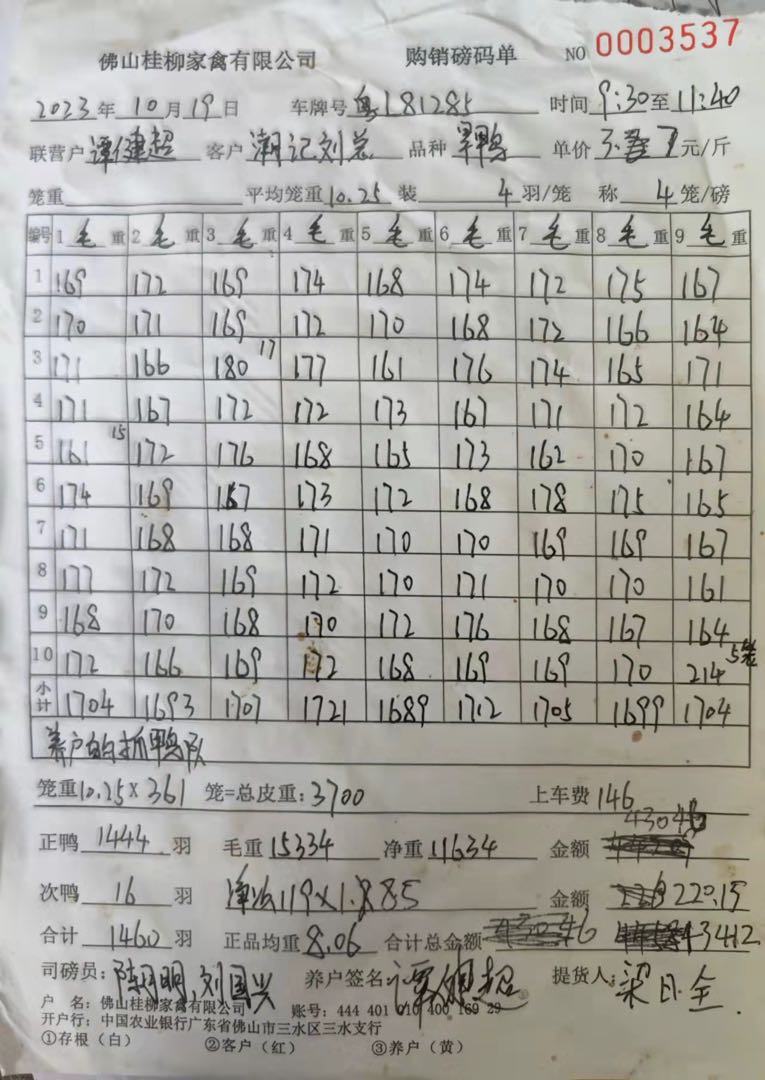 佛山桂柳家禽有限公司 购销磅码单 NO 0003537
2023年10月19日 车牌号 粤L81285 时间 9:30至11:40
联营户 谭健超 客户 潮记刘总 品种 单价 3. 7元/斤
笼重 平均笼重10.25 装 4 羽/笼 称 4 笼/磅
编号 1 毛 重 2 毛 重 3 毛 重 4 毛 重 5 毛 重 6 毛 重 7 毛 重 8 毛 重 9 毛 重
1 169 172 169 174 168 174 172 175 167
2 170 171 169 172 170 168 172 166 164
3 171 166 180 17 177 161 176 174 165 171
4 171 167 172 172 173 167 171 172 164
5 161 15 172 176 168 165 173 162 170 167
6 174 169 167 173 172 168 178 175 165
7 171 168 168 171 170 170 169 169 167
8 177 172 169 172 170 171 170 170 161
9 168 170 168 170 172 176 168 167 164
10 172 166 169 172 168 169 169 170 214 5笼
小计 1704 1693 1707 1721 1689 1712 1705 1699 1704
养户的抓鸭队
笼重10.25×361 笼=总皮重:3700 上车费 146
正鸭 1444 羽 毛重 15334 净重 11634 金额 43046
次鸭 16 羽 119×1.885 金额 220.15
合计 1460 羽 正品均重 8.06 合计总金额 43412
司磅员: 陈明明,刘国兴 养户签名: 谭健超 提货人: 梁日全
户 名:佛山桂柳家禽有限公司 账号:444 401 010 400 169 29
开户行:中国农业银行广东省佛山市三水区三水支行
①存根(白) ②客户(红) ③养户(黄)